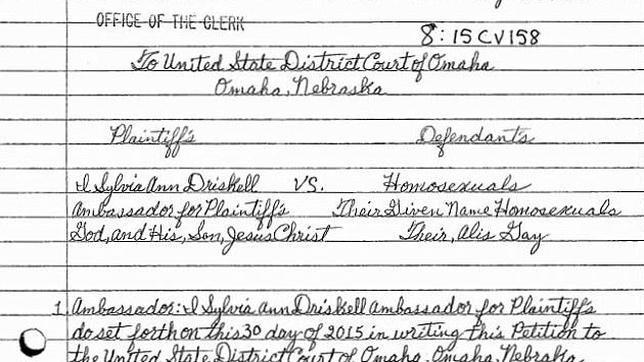 OFFICE OF THE CLERK
8:15CV158
To United State District Court of Omaha
Omaha, Nebraska
Plaintiff's Defendant's
I Sylvia Ann Driskell VS. Homosexuals
Ambassador for Plaintiff's Their Given Name Homosexuals
God, and His, Son, Jesus Christ Their, Alis Gay
1 Ambassador: I Sylvia Ann Driskell Ambassador for Plaintiff's
do set forth on this 30 day of 2015 in writing this Petition to
the United State District Court of Omaha, Omaha, Nebraska